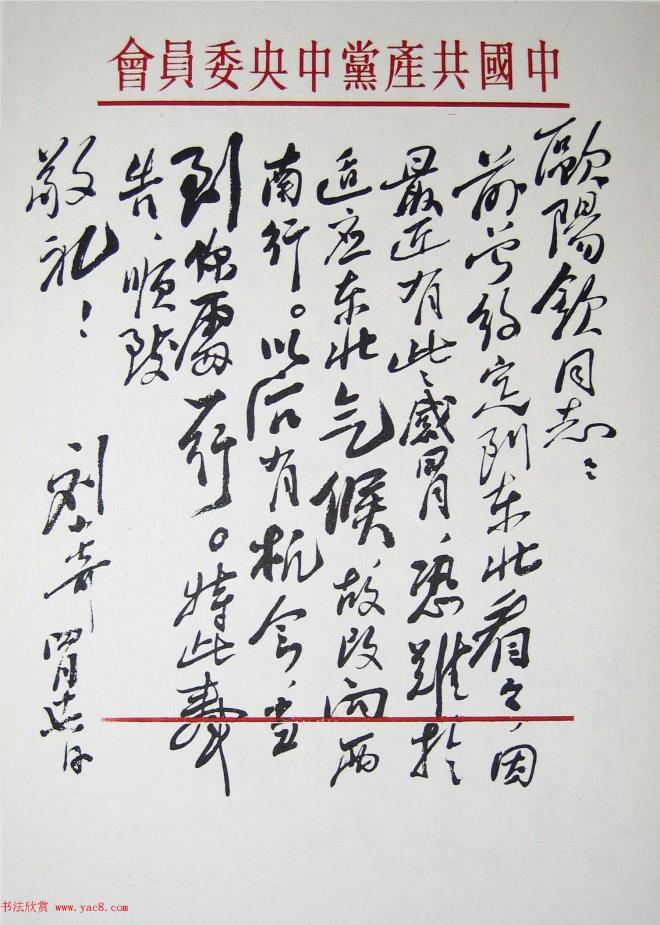 中國共產黨中央委員會
歐陽欽同志：
前曾約定到东北看々，因
最近有些感冒，恐难於
适应东北气候，故改向西
南行。以后有机会，当
到你處一行。特此奉
告，順致
敬礼！
刘少奇 四月十七日
书法欣赏 www.yac8.com